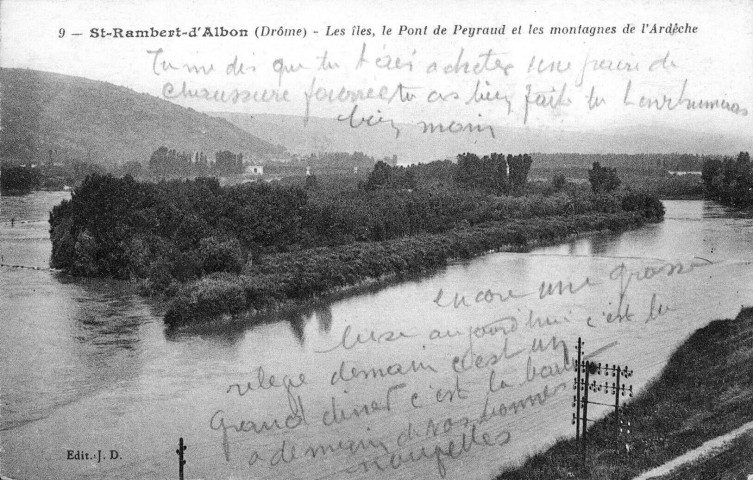 9 — St-Rambert-d'Albon (Drôme) - Les îles, le Pont de Peyraud et les montagnes de l'Ardèche
Tu me dis que tu t'es acheter une paire de
chaussure fourrée tu as bien fait tu t'enrhumeras
bien moin
encore une grosse
bise aujourd'hui c'est la
relege demain c'est un
Grand diner c'est la
a demain de vos bonnes
nouvelles
Edit. J. D.